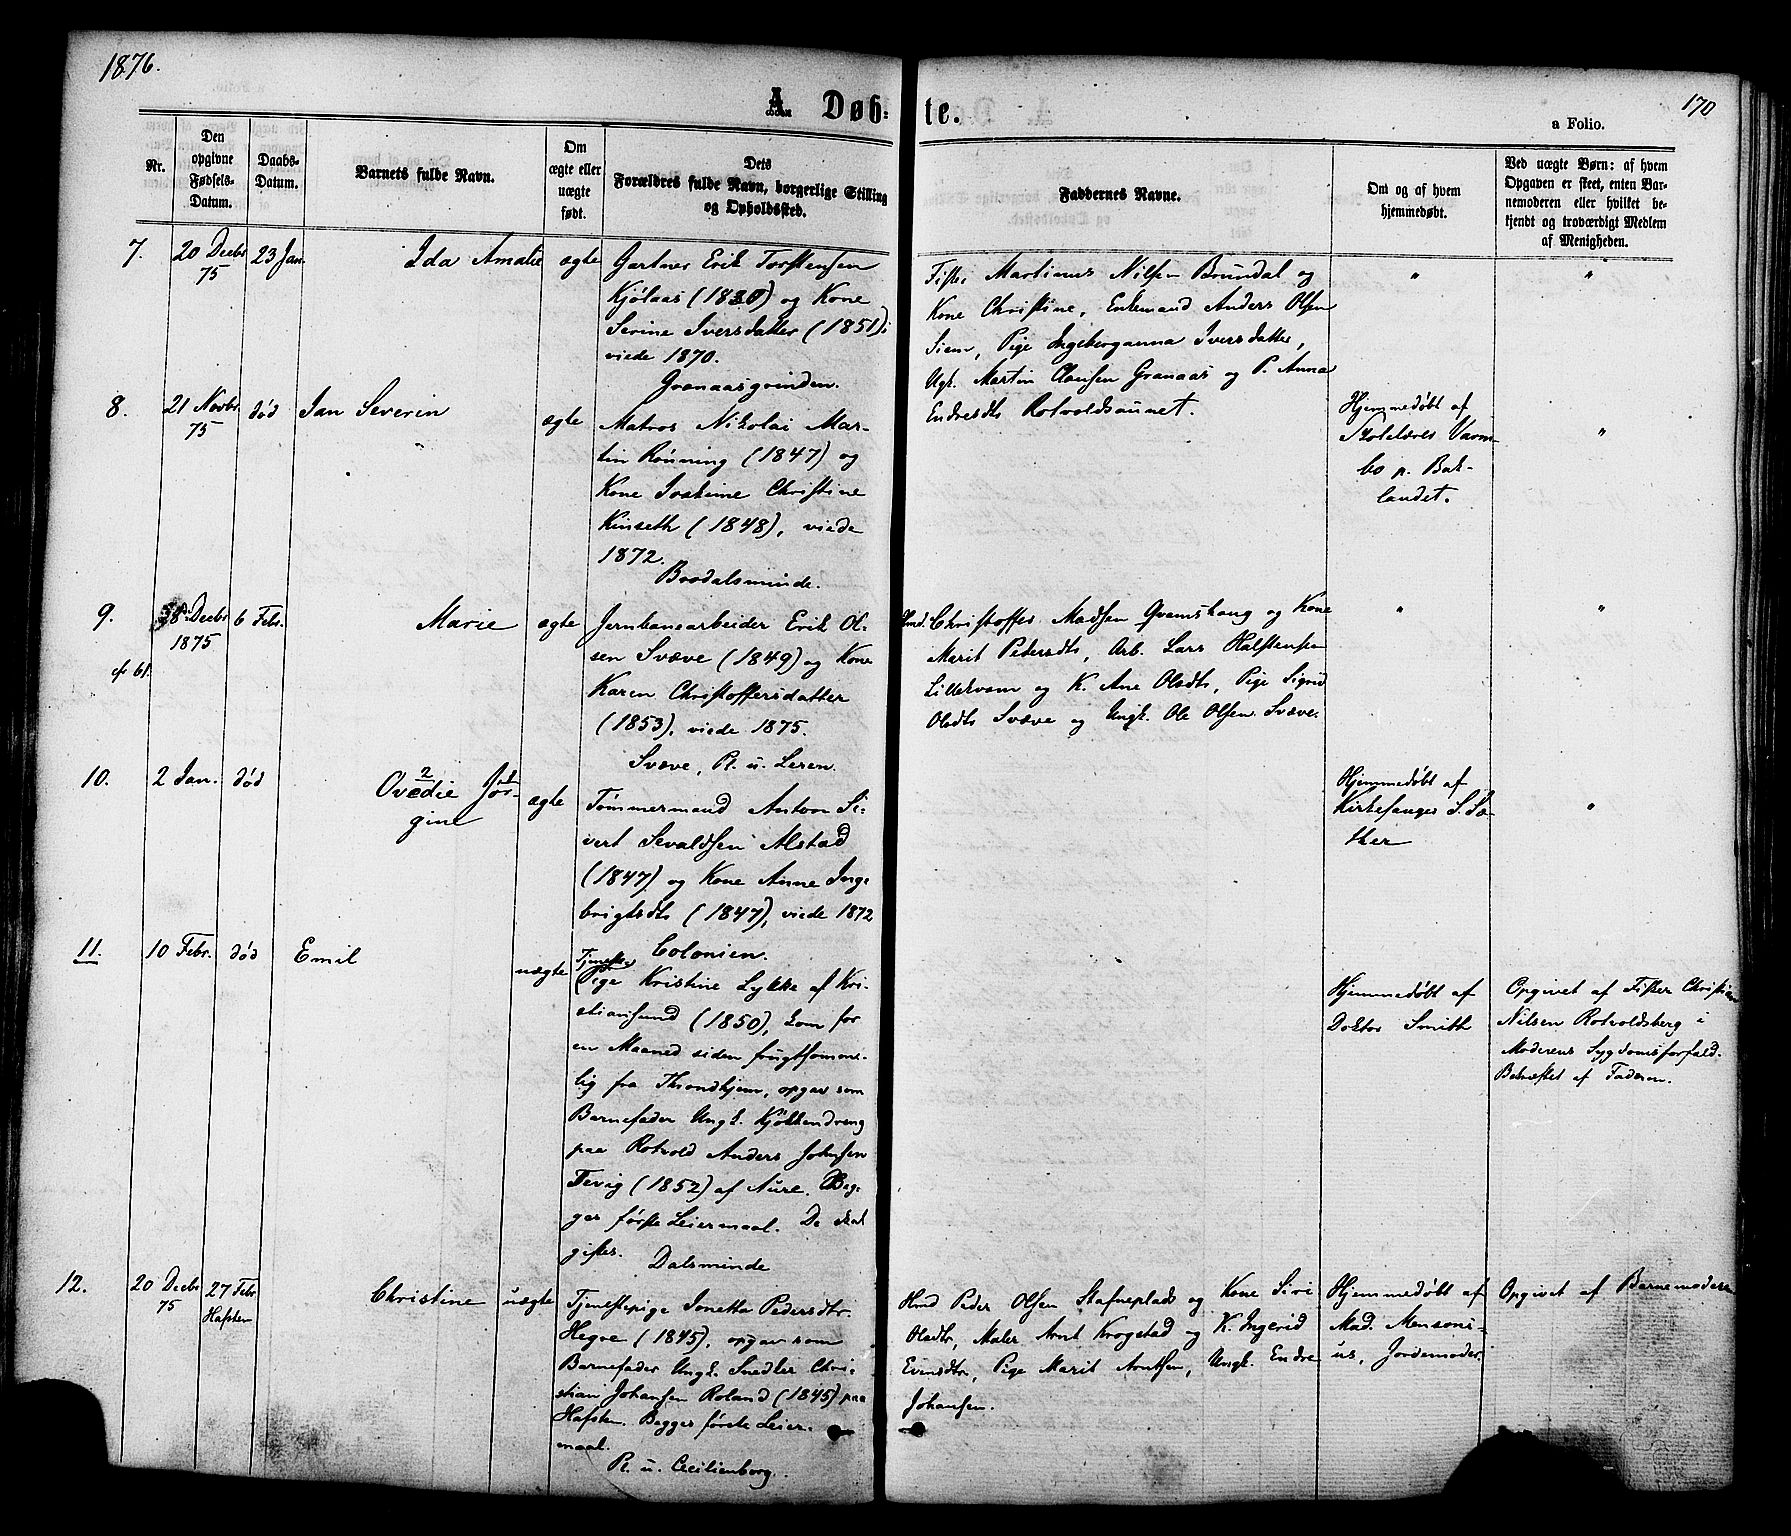 1876.
170
A. Døbte.
a Folio.
Nr.
Den opgivne Fødsels-Datum.
Daabs-Datum.
Barnets fulde Navn.
Om ægte eller uægte født.
Dets Forældres fulde Navn, borgerlige Stilling og Opholdssted.
Faddernes Navne.
Om og af hvem hjemmedøbt.
Ved uægte Børn: af hvem Opgaven er skeet, enten Barnemoderen eller hvilket bekjendt og troværdigt Medlem af Menigheden.
7.
20 Decbr
75
23 Jan.
Ida Amalie
ægte
Gartner Erik Torstensen
Kjølaas (1830) og Kone
Serine Iversdatter (1851),
viede 1870.
Granaasgrinden.
Fisker Martinus Nilsen Brundal og
Kone Christine, Enkemand Anders Olsen
Siem, Pige Ingeberganna Iversdatter,
Ugk. Martin Clausen Granaas og P. Anna
Endresdtr Rotvoldsaunet.
"
"
8.
21 Novbr
75
død
Jan Severin
ægte
Matros Nikolai Mar-
tin Rønning (1847) og
Kone Joakime Christine
Kinseth (1848), viede
1872.
Brodalsminde.
Hjemmedøbt af
Skolelærer Vaom-
bo p. Bak-
landet.
"
9.
28 Decbr
1875
cf 61.
6 Febr.
Marie
ægte
Jernbanearbeider Erik Ol-
sen Svæve (1849) og Kone
Karen Christoffersdatter
(1853), viede 1875.
Svæve, Pl. u. Leren.
Hmd. Christoffer Madsen Qvamshaug og Kone
Marit Pedersdtr, Arb. Lars Halstensen
Lillekvam og K. Ane Olsdtr, Pige Sigrid
Olsdtr Svæve og Ungk. Ole Olsen Svæve.
"
"
10.
2 Jan.
død
2 1
Ovedie Jør-
gine
ægte
Tømmermand Anton Si-
vert Sevaldsen Alstad
(1847) og Kone Anne Inge-
brigtsdtr (1847), viede 1872
Colonien.
Hjemmedøbt af
Kirkesanger S. Sæ-
ther
"
11.
10 Febr.
død
Emil
uægte
Tjeneste
Pige Kristine Lykke af Kri-
stiansund (1850), kom for
en Maaned siden frugtsomme-
lig fra Throndhjem, opgav som
Barnefader Ungk. Kjøkkendreng
paa Rotvold Anders Johnsen
Tevig (1852) af Aure. Beg-
ges første Leiermaal. De skal
giftes.
Dalsminde
Hjemmedøbt af
Doktor Smith
Opgivet af Fisker Christian
Nilsen Rotvoldsberg i
Moderens Sygdomsforfald.
Bekræftet af Faderen.
12.
20 Decbr
75
27 Febr
Hafsten
Christine
uægte
Tjenestepige Jonetta Pedersdtr.
Hegre (1845), opgav som
Barnefader Ungk. Snedker Chri-
stian Johansen Roland (1845) paa
Hafsten. Begges første Leier-
maal.
Pl. u. Cecilienborg.
Hmd Peder Olsen Stafneplads og Kone Siri
Olsdtr, Maler Arnt Krogstad og K. Ingerid
Evensdtr, Pige Marit Arntsen, Ungk. Endre
Johansen.
Hjemmedøbt af
Mad. Monsoni-
us, Jordemoder.
Opgivet af Barnemoderen